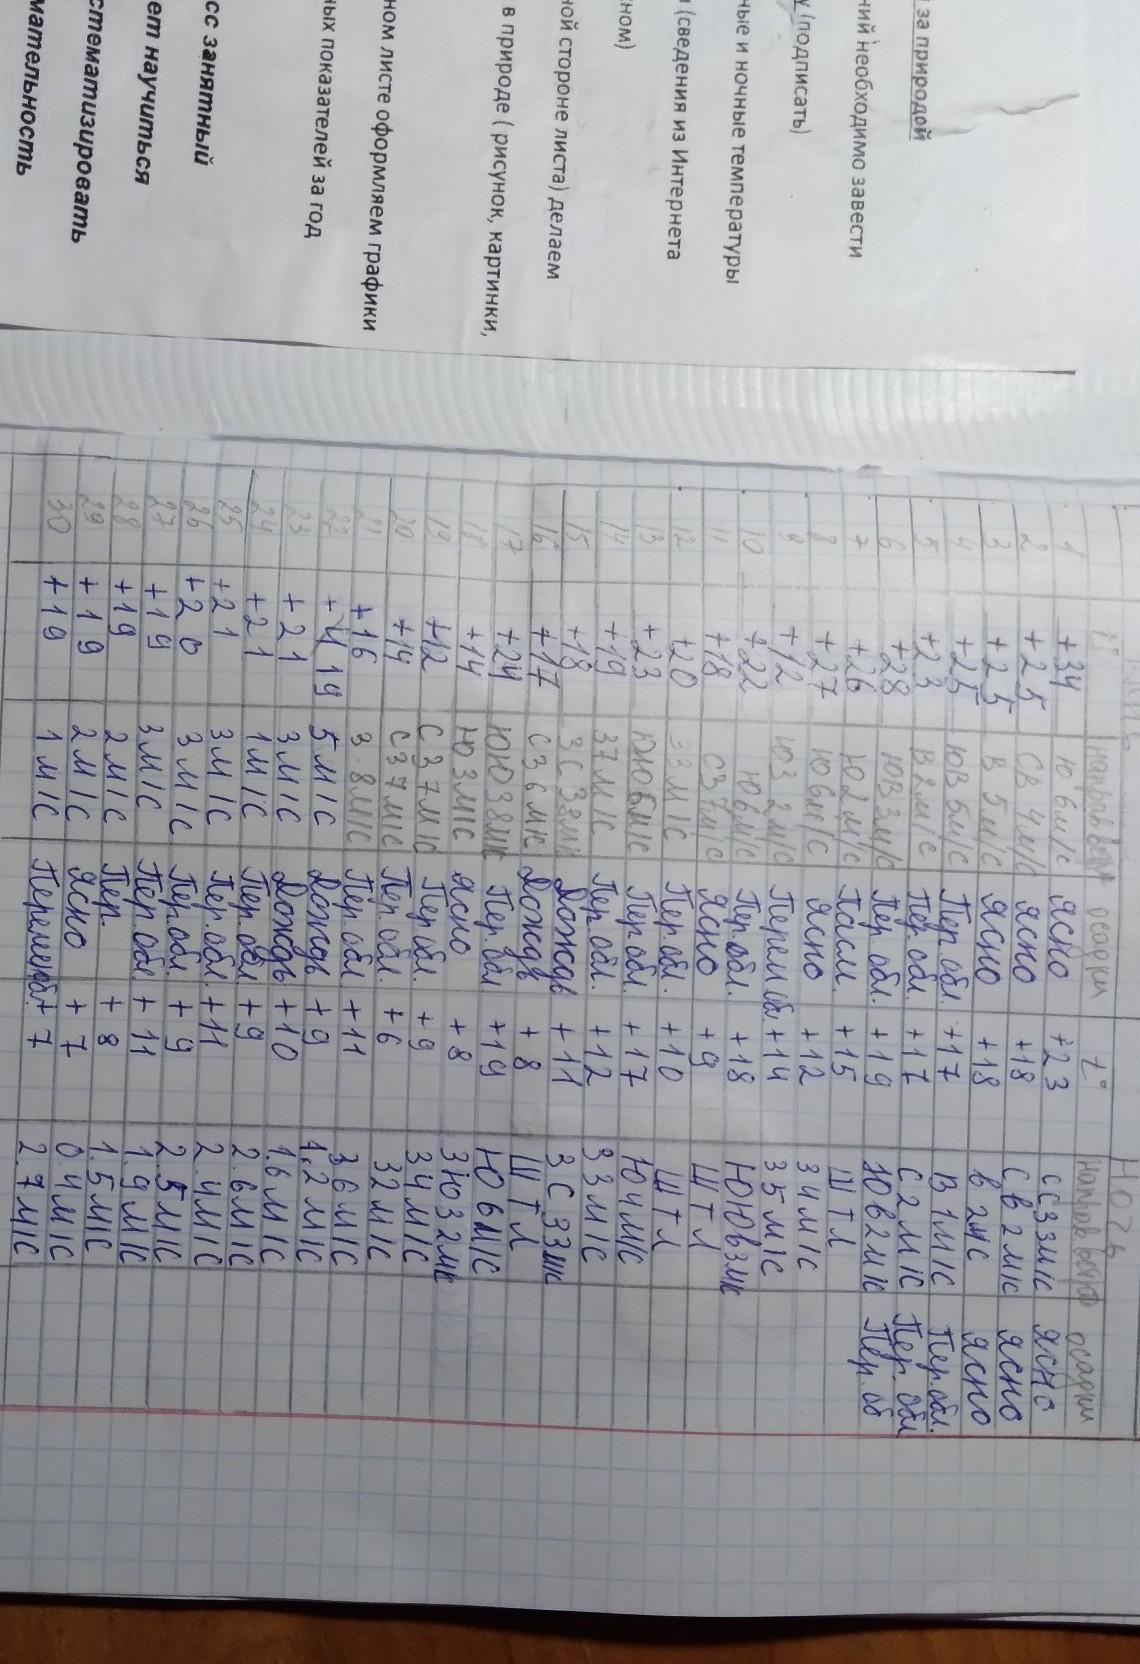 за природой
ний необходимо завести
у (подписать)
ные и ночные температуры
и (сведения из Интернета
ном)
ной стороне листа) делаем
в природе ( рисунок, картинки,
ном листе оформляем графики
ных показателей за год
сс занятный
ет научиться
стематизировать
мательность
Ночь
t° направ ветра осадки t° направ ветра осадки
1 +34 Ю 6м/с ясно +23 ССЗ 3м/с ясно
2 +25 СВ 4м/с ясно +18 СВ 2м/с ясно
3 +25 В 5м/с ясно +18 В 2м/с ясно
4 +25 ЮВ 5м/с Пер.обл. +17 В 1м/с Пер.обл.
5 +23 В 2м/с Пер.обл. +17 С 2м/с Пер.обл
6 +28 ЮВ 3м/с Пер.обл. +19 ЮВ 2м/с Пер.об
7 +26 Ю 2м/с Пасм. +15 ШТЛ
8 +27 Ю 6м/с ясно +12 З 4м/с
9 +12 ЮЗ 2м/с Перем.обл +14 З 5м/с
10 +22 Ю 6м/с Пер.обл. +18 ЮЮВ 3м/с
11 +18 СЗ 7м/с ясно +9 ШТЛ
12 +20 З 3м/с Пер.обл. +10 ШТЛ
13 +23 ЮЮ 6м/с Пер.обл. +17 Ю 4м/с
14 +19 З 7м/с Пер.обл. +12 З 3м/с
15 +18 ЗСЗ 3м/с Дождь +11 ЗСЗ 3м/с
16 +17 СЗ 6м/с Дождь +8 ШТЛ
17 +24 ЮЮЗ 8м/с Пер.обл +19 Ю 6м/с
18 +14 Ю 3м/с ясно +8 ЗЮЗ 2м/с
19 +12 СЗ 7м/с Пер.обл. +9 З 4м/с
20 +14 СЗ 7м/с Пер.обл. +6 З 2м/с
21 +16 З. 8м/с Пер.обл. +11 3.6м/с
22 19 5м/с Дождь +9 1.2м/с
23 +21 3м/с Дождь +10 1.6м/с
24 +21 1м/с Пер.обл +9 2.6м/с
25 +21 3м/с Пер.обл. +11 2.4м/с
26 +20 3м/с Пер.обл. +9 2.5м/с
27 +19 3м/с Пер.обл. +11 1.9м/с
28 +19 2м/с Пер. +8 1.5м/с
29 +19 2м/с ясно +7 0.4м/с
30 +19 1м/с Перем.обл. +7 2.7м/с